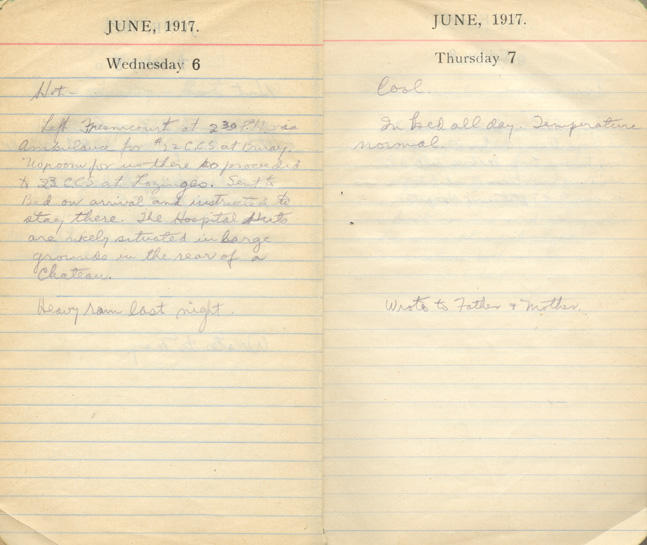 JUNE, 1917.
Wednesday 6
Hot -
Left Fresnicourt at 2 30 P.M. via
Ambulance for #22 C.C.S at Bruay.
No room for us there so proceeded
to 23 C.C.S at Lozinghem. Sent to
Bed on arrival and instructed to
stay there. The Hospital Huts
are nicely situated in large
grounds in the rear of a
Chateau.
Heavy rain last night.
JUNE, 1917.
Thursday 7
Cool.
In bed all day. Temperature
normal.
Wrote to Father & Mother.